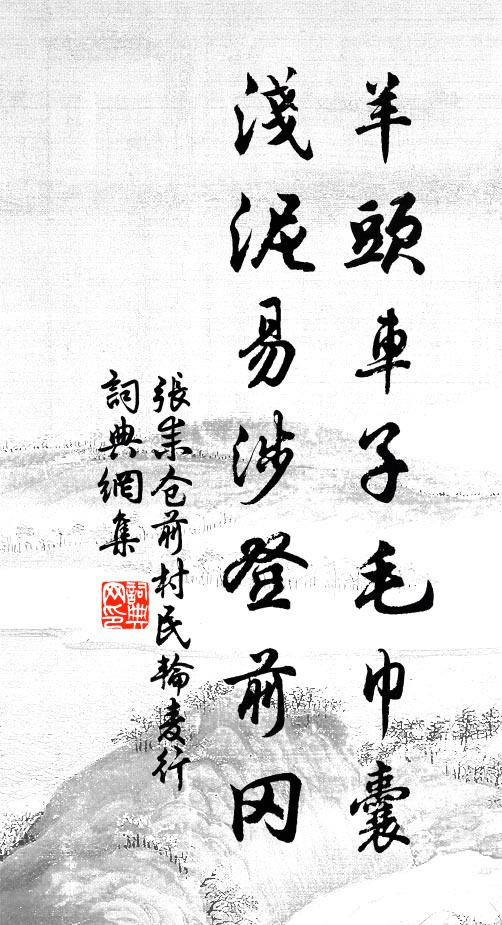 羊頭車子毛巾囊
淺泥易涉登前冈
張耒仓前村民輪麦行
詞典網集
詞典
网印